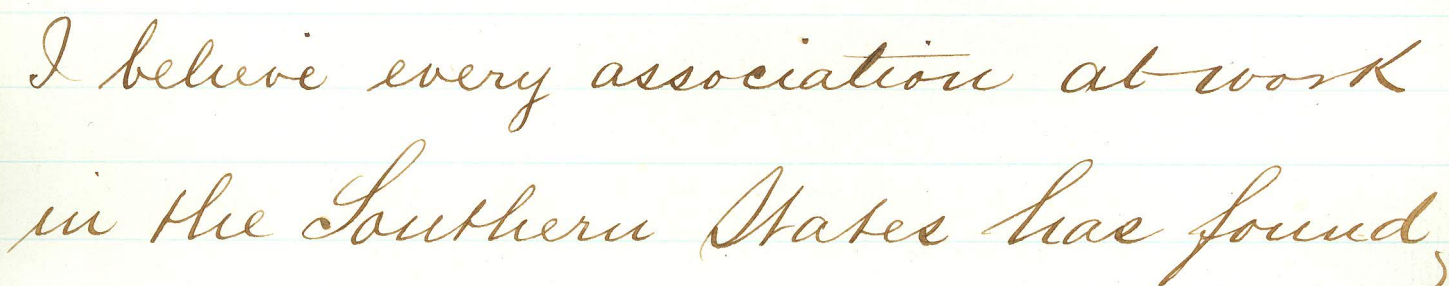 I believe every association at work
in the Southern States has found,